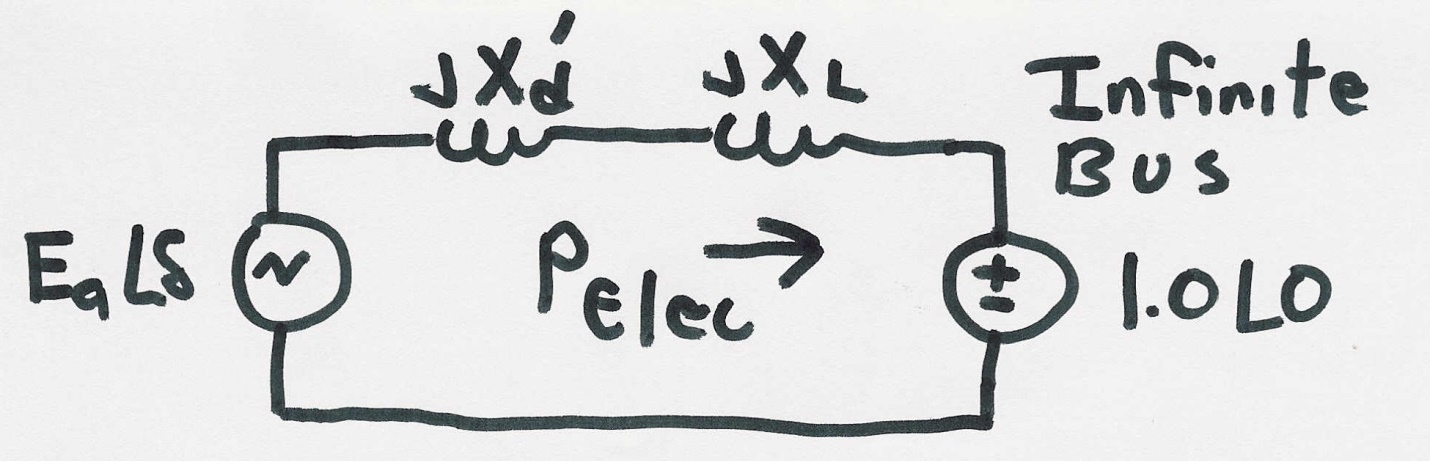 JXd' JXL Infinite
Bus
Ea∠δ ~ PElec → ± 1.0∠0